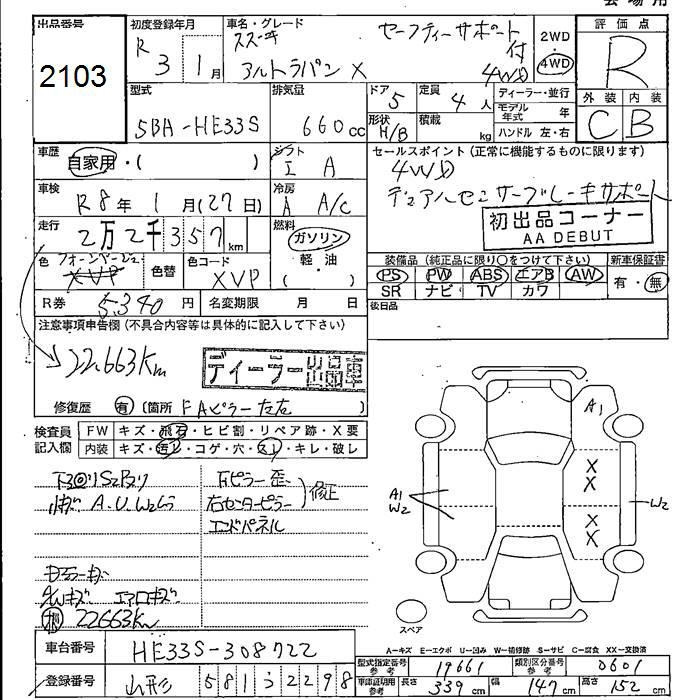 会場用
出品番号
2103
初度登録年月
R 3 1月
車名・グレード
スズキ セーフティーサポート付
アルトラパン X 4WD
2WD
4WD
評価点
R
外装 内装
C B
型式
5BA-HE33S
排気量
660cc
ドア 5
定員 4人
形状 H/B
積載 kg
ディーラー・並行
モデル年式 年
ハンドル 左・右
車歴
自家用・( )
シフト
I A
セールスポイント(正常に機能するものに限ります)
4WD
デュアルセンサーブレーキサポート
初出品コーナー
AA DEBUT
車検
R8年 1月(27日)
冷房
A A/C
走行
2万2千357km
燃料
ガソリン
軽・油
( )
色
XVP
色替
色コード
XVP
装備品(純正品に限り○をつけて下さい)
新車保証書
PS PW ABS エアB AW
SR ナビ TV カワ
有・無
R券 5,340円
名変期限 月 日
後日品
注意事項申告欄(不具合内容等は具体的に記入して下さい)
22,663Km
ディーラー出品車
修復歴 有(箇所 FAピラー左右 )
検査員記入欄
FW キズ・飛石・ヒビ割・リペア跡・X要
内装 キズ・汚レ・コゲ・穴・スレ・キレ・破レ
A.U.W2
右センターピラー
エンドパネル
修正
エアロキズ
22663Km
A1
X
X
A1
W2
X
X
W2
スペア
車台番号 HE33S-308722
登録番号 山形 581 32298
A=キズ E=エクボ U=凹み W=補修跡 S=サビ C=腐食 XX=交換済
型式指定番号 参考 19661
類別区分番号 参考 0601
車庫証明用 参考 長さ 339cm 幅 147cm 高さ 152cm